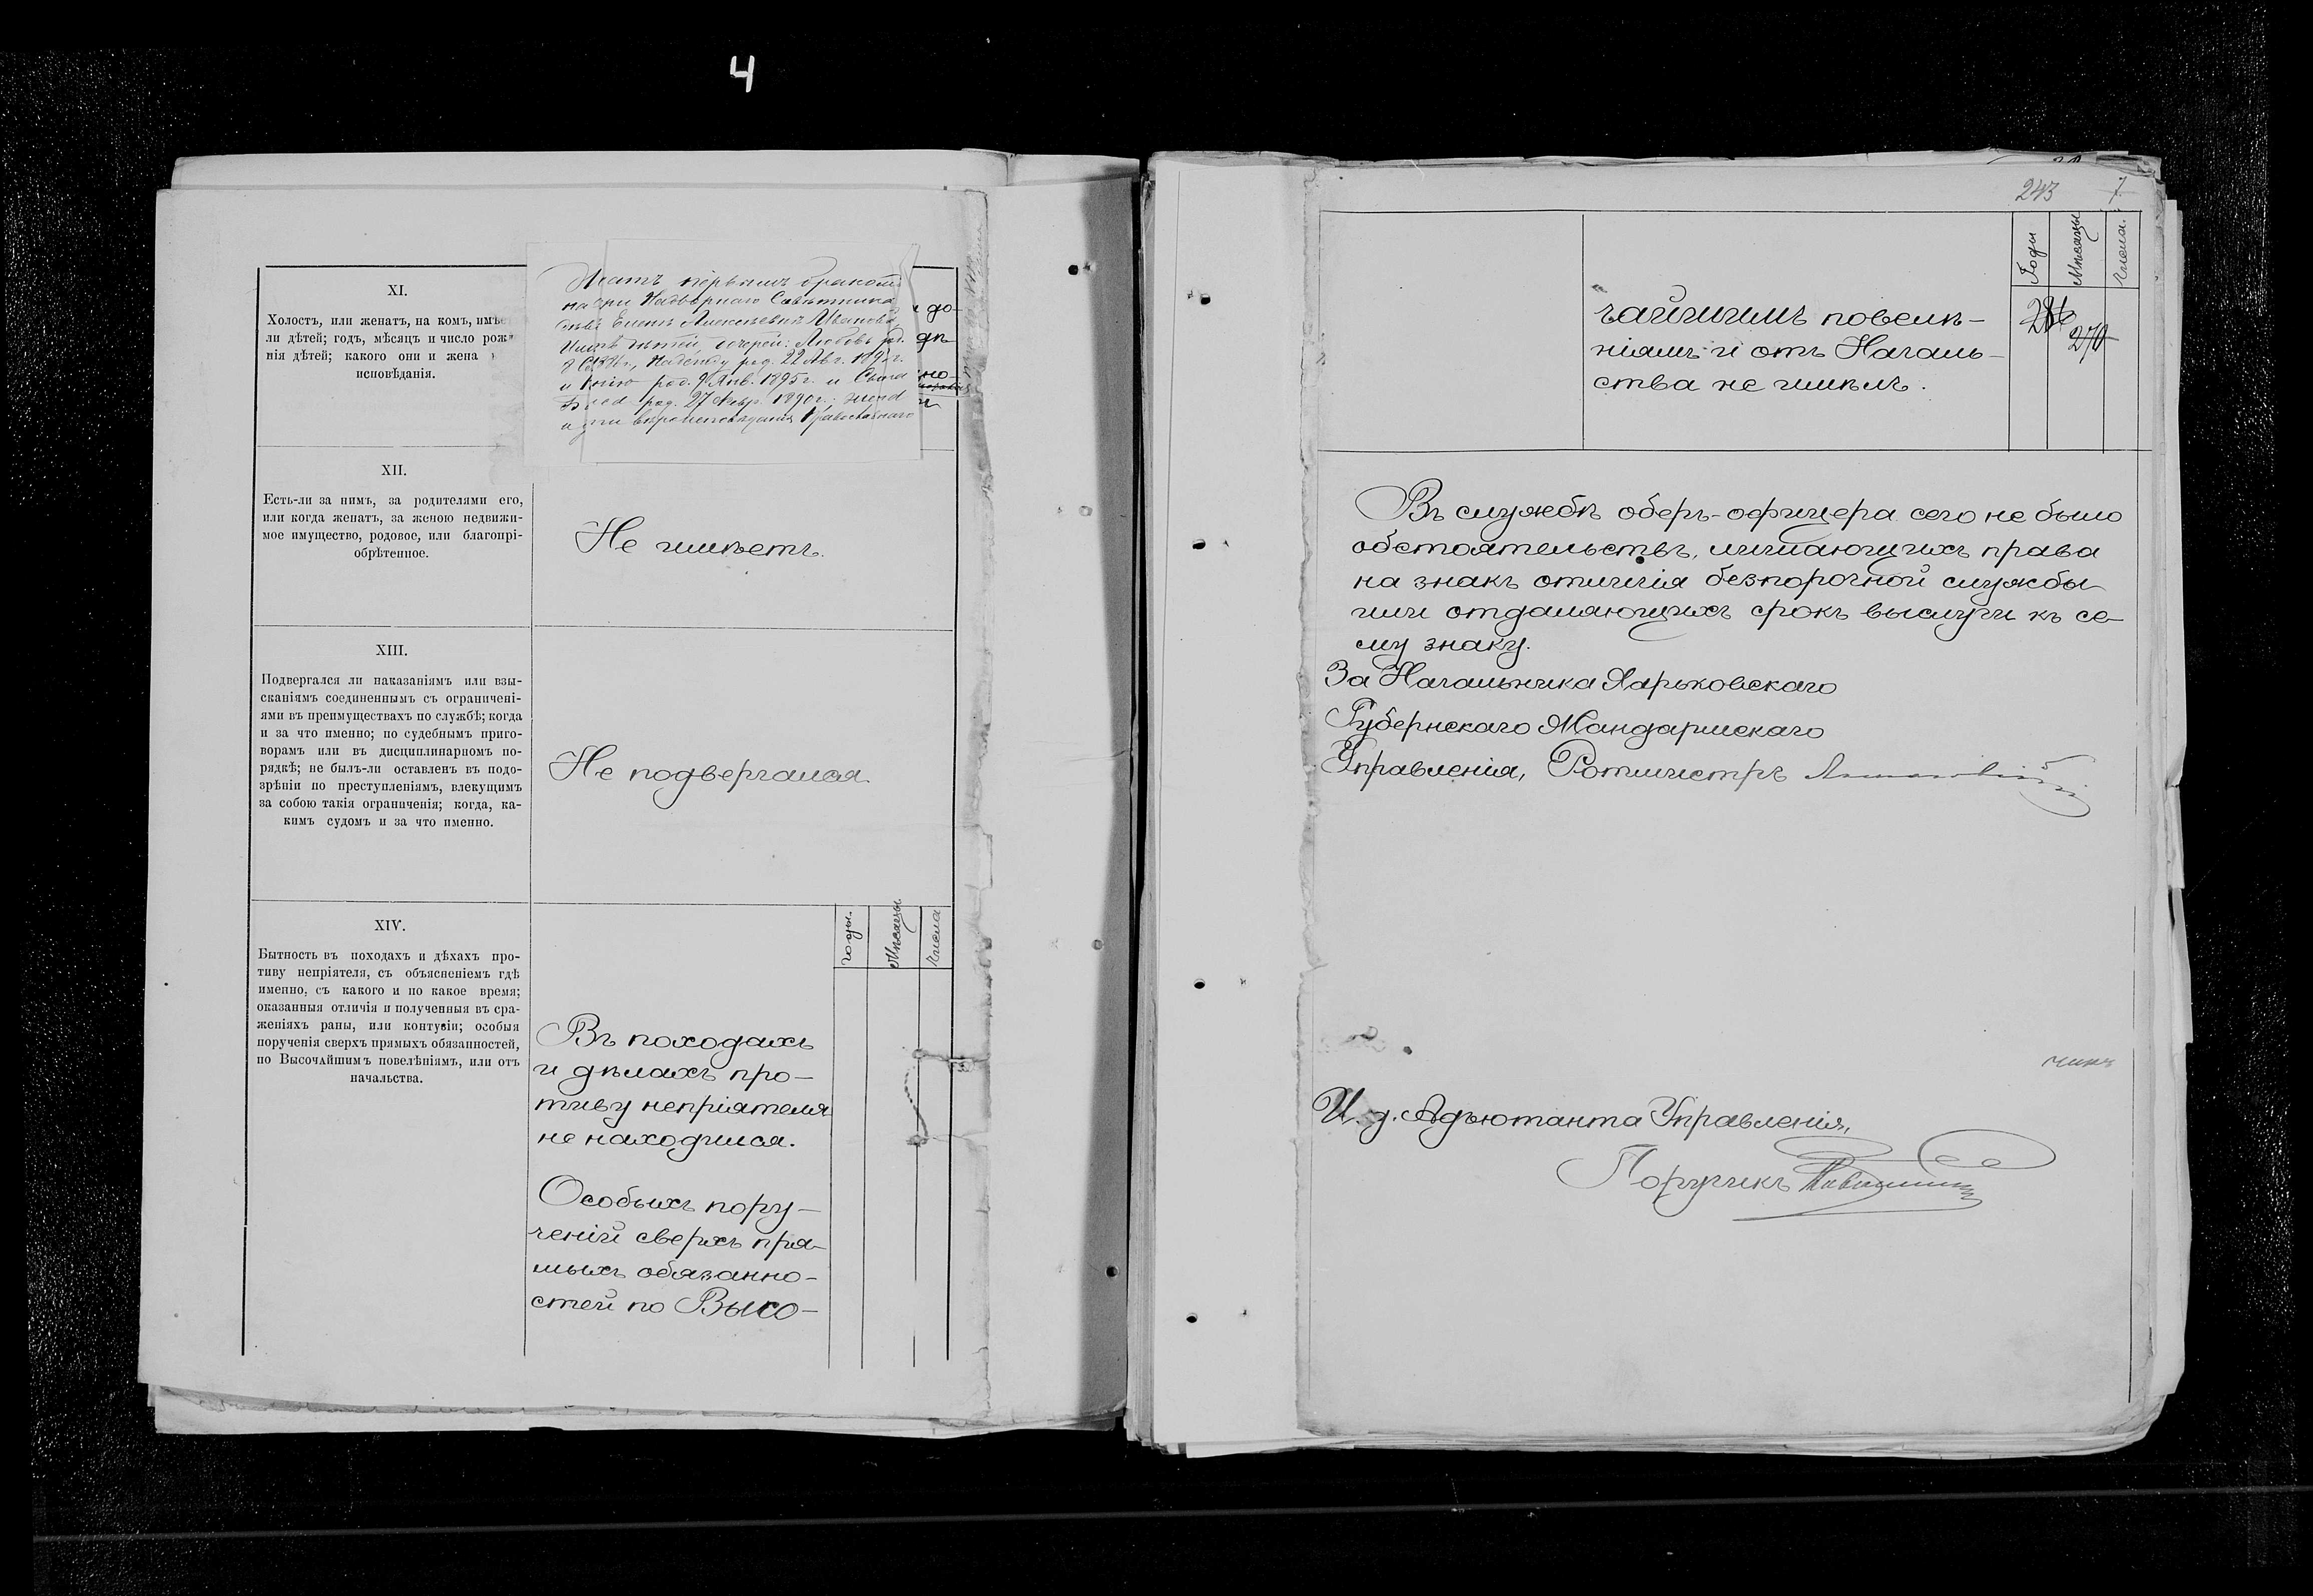 4
XI.
Холостъ, или женатъ, на комъ, имѣе
ли дѣтей; годъ, мѣсяцъ и число рож
нія дѣтей; какого они и жена
исповѣданія.
Женатъ первымъ бракомъ
на дочери Надворнаго Совѣтника
Еленѣ Алексѣевнѣ
дочерей: Любовь р.
Надежду род. 22 Авг.
род. 9 Янв. 1895 г. и Сына
род. 27 1890 г.; жена
и дѣти вѣроисповѣданія Православнаго
до-
но-
XII.
Есть-ли за нимъ, за родителями его,
или когда женатъ, за женою недвижи-
мое имущество, родовое, или благопрі-
обрѣтенное.
Не имѣетъ.
XIII.
Подвергался ли наказаніямъ или взы-
сканіямъ соединеннымъ съ ограничені-
ями въ преимуществахъ по службѣ; когда
и за что именно; по судебнымъ приго-
ворамъ или въ дисциплинарномъ по-
рядкѣ; не былъ-ли оставленъ въ подо-
зрѣніи по преступленіямъ, влекущимъ
за собою такія ограниченія; когда, ка-
кимъ судомъ и за что именно.
Не подвергался.
XIV.
Бытность въ походахъ и дѣхахъ про-
тиву непріятеля, съ объясненіемъ гдѣ
именно, съ какого и по какое время;
оказанныя отличія и полученныя въ сра-
женіяхъ раны, или контузіи; особыя
порученія сверхъ прямыхъ обязанностей,
по Высочайшимъ повелѣніямъ, или отъ
начальства.
Годы.
Мѣсяцы
Числа
Въ походахъ
и дѣлахъ про-
тиву непріятеля
не находился.
Особыхъ пору-
ченій сверхъ пря-
мыхъ обязанно-
стей по Высо-
243
7
Годы
Мѣсяцы
Числа.
чайшимъ повелѣ-
ніямъ и отъ Началь-
ства не имѣлъ.
270
Въ службѣ оберъ-офицера сего не было
обстоятельствъ, лишающихъ права
на знакъ отличія безпорочной службы
или отдаляющихъ срокъ выслуги къ се-
му знаку.
За Начальника Харьковскаго
Губернскаго Жандармскаго
Управленія, Ротмистръ
И. д. Адъютанта Управленія,
Поручикъ